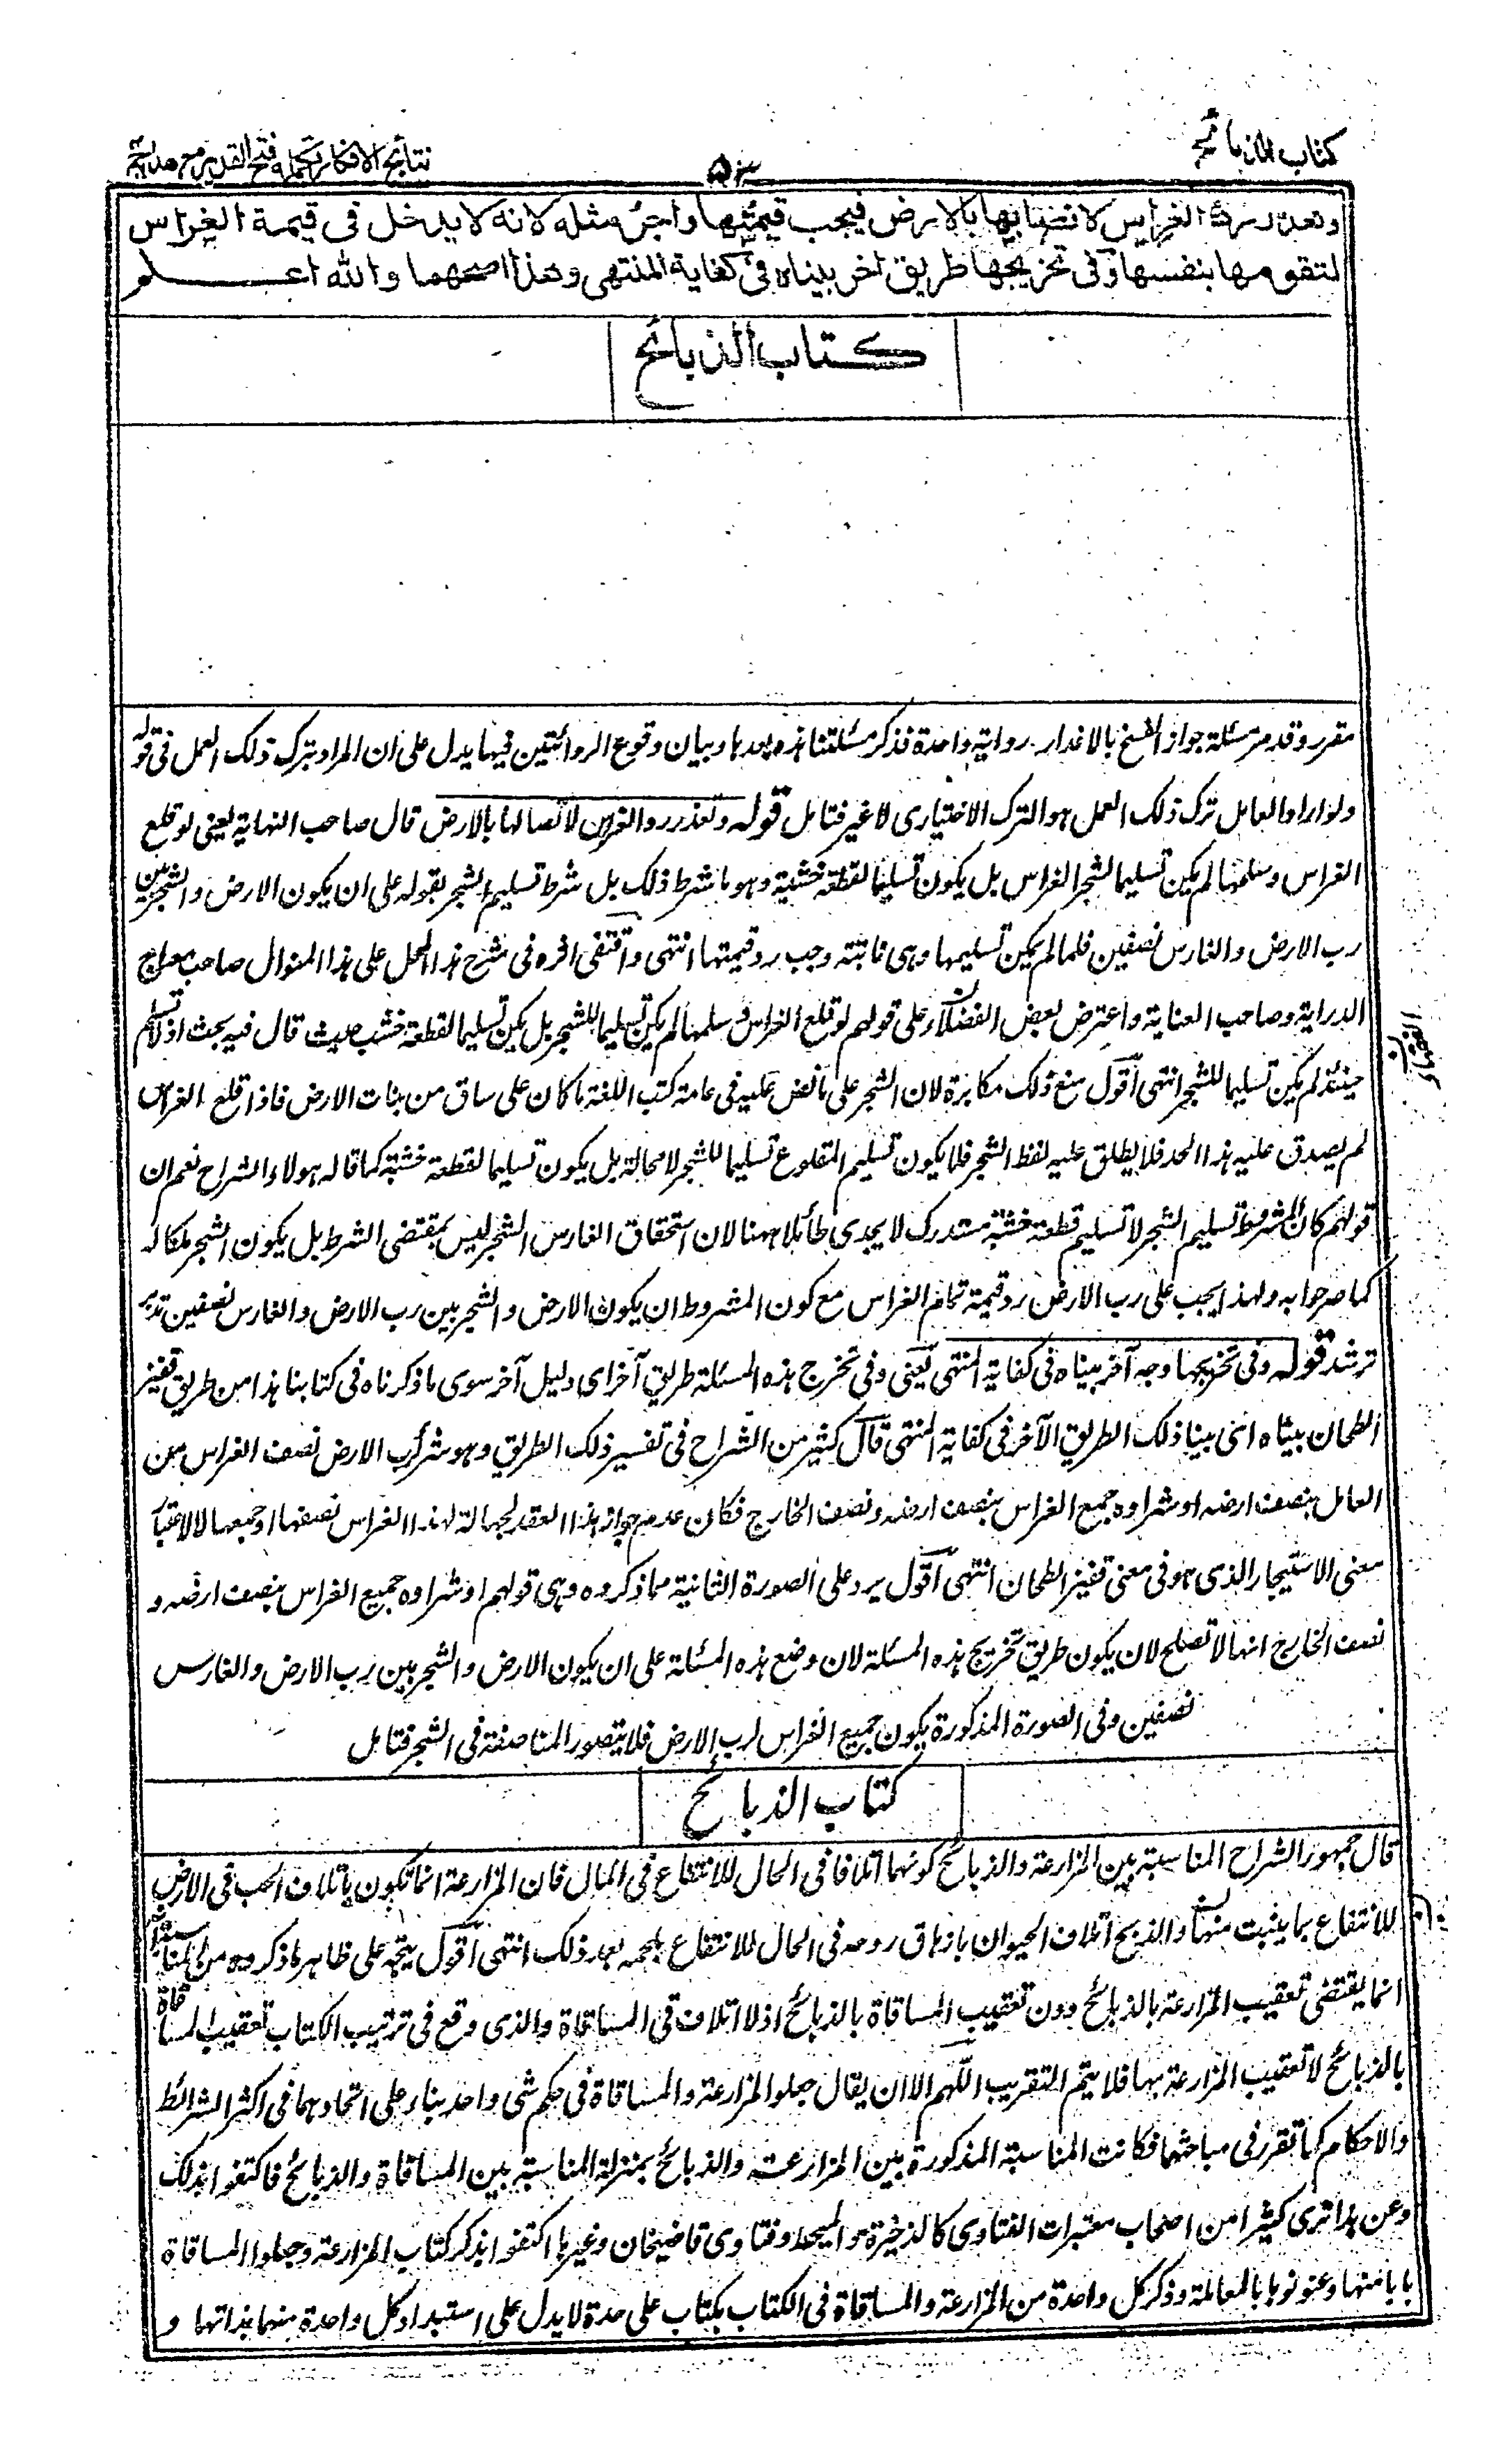 كتاب الذبائح
٥٣
نتائج الافكار تكملة فتح القدير مع هداية
وتعذر رد الغراس لاتصالها بالارض فيجب قيمتها واجر مثله لانه لا يدخل فى قيمة الغراس
لتقومها بنفسها وفى تخريجها طريق اخر بيناه فى كفاية المنتهى وهذا اصحهما والله اعلم
كتاب الذبائح
مقرر وقد مر مسئلة جواز الفسخ بالاعذار رواية واحدة فذكر مسئلتنا هذه بعدها وبيان وقوع الروايتين فيها يدل على ان المراد بترك ذلك العمل فى قوله
ولو اراد العامل ترك ذلك العمل هو الترك الاختيارى لا غير فتامل قوله وتعذر رد الغراس لاتصالها بالارض قال صاحب النهاية يعنى لو قلع
الغراس وسلمها لم يكن تسليما لشجر الغراس بل يكون تسليما لقطعة خشبة وهو ما شرط ذلك بل شرط تسليم الشجر بقوله على ان يكون الارض والشجر بين
رب الارض والغارس نصفين فلما لم يمكن تسليمها وهى نابتة وجب رد قيمتها انتهى واقتفى اثره فى شرح هذا المحل على هذا المنوال صاحب معراج
الدراية وصاحب العناية واعترض بعض الفضلاء على قولهم لو قلع الغراس وسلمها لم يكن تسليما للشجر بل يكن تسليما لقطعة خشب حيث قال فيه بحث اذ لا نسلم
حينئذ لم يكن تسليما للشجر انتهى اقول منع ذلك مكابرة لان الشجر على ما نص عليه فى عامة كتب اللغة ما كان على ساق من بنات الارض فاذا قلع الغراس
لم يصدق عليه هذا الحد فلا يطلق عليه لفظ الشجر فلا يكون تسليم المقلوع تسليما للشجر لا محالة بل يكون تسليما لقطعة خشبة كما قاله هولاء الشراح نعم ان
قولهم كان المشروط تسليم الشجر لا تسليم قطعة خشبة مستدرك لا يجدى طائلا ههنا لان استحقاق الغارس الشجر ليس بمقتضى الشرط بل يكون الشجر ملكا له
كما صرحوا به ولهذا يجب على رب الارض رد قيمة تمام الغراس مع كون المشروط ان يكون الارض والشجر بين رب الارض والغارس نصفين تدبر
ترشد قوله وفى تخريجها وجه آخر بيناه فى كفاية المنتهى يعنى وفى تخرج هذه المسئلة طريق آخر اى دليل آخر سوى ما ذكرناه فى كتابنا هذا من طريق قفيز
الطحان بيناه اى بينا ذلك الطريق الآخر فى كفاية المنتهى قال كثير من الشراح فى تفسير ذلك الطريق وهو شراء رب الارض نصف الغراس من
العامل بنصف ارضه او شراوه جميع الغراس بنصف ارضه ونصف الخارج فكان عدم جواز هذا العقد لجهالة لهذا الغراس نصفها او جميعها لا لاعتبار
معنى الاستيجار الذى هو فى معنى قفيز الطحان انتهى اقول يرد على الصورة الثانية مما ذكروه وهى قولهم او شراوه جميع الغراس بنصف ارضه و
نصف الخارج انها لا تصلح لان يكون طريق تخريج هذه المسئلة لان وضع هذه المسئلة على ان يكون الارض والشجر بين رب الارض والغارس
نصفين وفى الصورة المذكورة يكون جميع الغراس لرب الارض فلا يتصور المناصفة فى الشجر فتامل
كتاب الذبائح
قال جمهور الشراح المناسبة بين المزارعة والذبائح كونهما اتلافا فى الحال للانتفاع فى المال فان المزارعة انما تكون باتلاف الحب فى الارض
للانتفاع بما ينبت منها والذبح اتلاف الحيوان بازهاق روحه فى الحال للانتفاع بلحمه بعد ذلك انتهى اقول يتجه على ظاهر ما ذكروه من المناسبة انه
انما يقتضى تعقيب المزارعة بالذبائح دون تعقيب المساقاة بالذبائح اذ لا اتلاف فى المساقاة والذى وقع فى ترتيب الكتاب تعقيب المساقاة
بالذبائح لا تعقيب المزارعة بها فلا يتم التقريب اللهم الا ان يقال جعلوا المزارعة والمساقاة فى حكم شى واحد بناء على اتحادهما فى اكثر الشرائط
والاحكام كما تقرر فى مباحثهما فكانت المناسبة المذكورة بين المزارعة والذبائح بمنزلة المناسبة بين المساقاة والذبائح فاكتفوا بذلك
وعن هذا ترى كثيرا من اصحاب معتبرات الفتاوى كالذخيرة والمحيط وفتاوى قاضيخان وغيرها اكتفوا بذكر كتاب المزارعة وجعلوا المساقاة
بابا منها وعنونوها بالمعاملة وذكر كل واحدة من المزارعة والمساقاة فى الكتاب بكتاب على حدة لا يدل على استبداد كل واحدة منهما بذاتها و